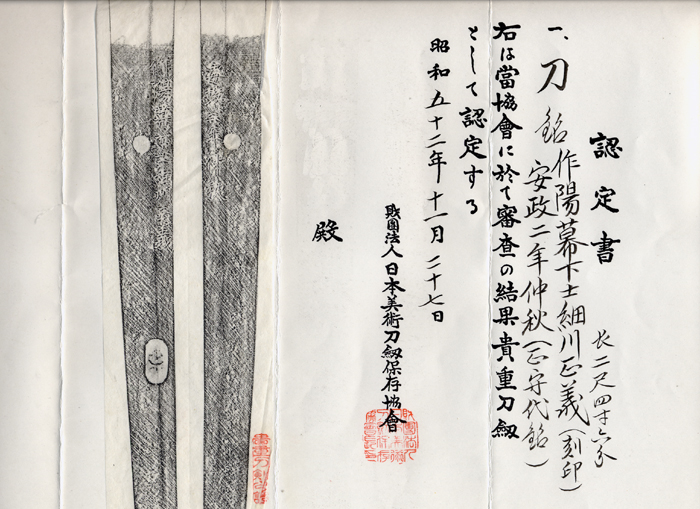 認定書
一、刀 銘 作陽幕下士細川正義(刻印)
長二尺四寸六分
安政二年仲秋(正守代銘)
右は當協會に於て審査の結果貴重刀剱
として認定する
昭和五十二年十一月二十七日
財團法人日本美術刀剱保存協會
殿